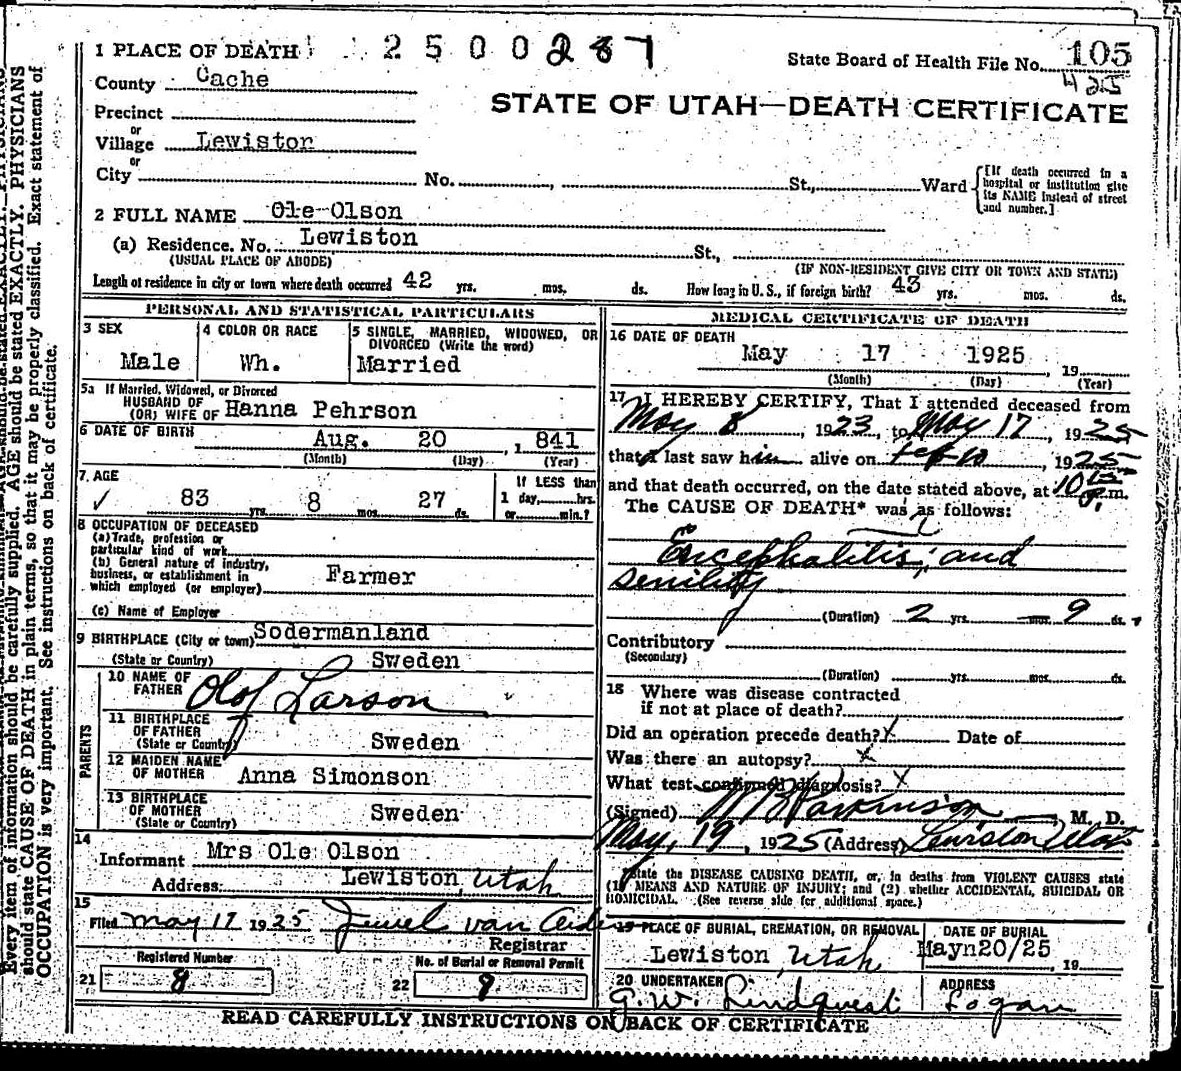 1 PLACE OF DEATH 2500287
State Board of Health File No. 105
425
County Cache
STATE OF UTAH—DEATH CERTIFICATE
Precinct
or
Village Lewiston
or
City No. , St., Ward [If death occurred in a hospital or institution give its NAME instead of street and number.]
2 FULL NAME Ole Olson
(a) Residence. No. Lewiston St.,
(USUAL PLACE OF ABODE) (IF NON-RESIDENT GIVE CITY OR TOWN AND STATE)
Length of residence in city or town where death occurred 42 yrs. mos. ds. How long in U. S., if foreign birth? 43 yrs. mos. ds.
PERSONAL AND STATISTICAL PARTICULARS
3 SEX 4 COLOR OR RACE 5 SINGLE, MARRIED, WIDOWED, OR
DIVORCED (Write the word)
Male Wh. Married
5a If Married, Widowed, or Divorced
HUSBAND OF
(OR) WIFE OF Hanna Pehrson
6 DATE OF BIRTH Aug. 20 , 1 841
(Month) (Day) (Year)
7. AGE If LESS than
✓ 83 yrs. 8 mos. 27 ds. 1 day, hrs.
or min.?
8 OCCUPATION OF DECEASED
(a) Trade, profession or
particular kind of work
(b) General nature of industry,
business, or establishment in
which employed (or employer) Farmer
(c) Name of Employer
9 BIRTHPLACE (City or town) Sodermanland
(State or Country) Sweden
PARENTS
10 NAME OF
FATHER Olof Larson
11 BIRTHPLACE
OF FATHER
(State or Country) Sweden
12 MAIDEN NAME
OF MOTHER Anna Simonson
13 BIRTHPLACE
OF MOTHER
(State or Country) Sweden
14
Informant Mrs Ole Olson
Address: Lewiston, Utah
15
Filed May 17 1925 Jewel van
Registrar
Registered Number No. of Burial or Removal Permit
21 8 22 9
MEDICAL CERTIFICATE OF DEATH
16 DATE OF DEATH
May 17 1925 , 19
(Month) (Day) (Year)
17 I HEREBY CERTIFY, That I attended deceased from
May 8 , 1923, to May 17 , 1925
that I last saw him alive on Feb 10 , 1925
and that death occurred, on the date stated above, at 10 15 p.m.
The CAUSE OF DEATH* was as follows:
Encephalitis; and
senility
(Duration) 2 yrs. mos. 9 ds.
Contributory
(Secondary)
(Duration) yrs. mos. ds.
18 Where was disease contracted
if not at place of death?
Did an operation precede death? X Date of
Was there an autopsy? X
What test confirmed diagnosis? X
(Signed) W B Parkinson, M. D.
May, 19, 1925 (Address) Lewiston Utah
State the DISEASE CAUSING DEATH, or, in deaths from VIOLENT CAUSES state
(1) MEANS AND NATURE OF INJURY; and (2) whether ACCIDENTAL, SUICIDAL OR
HOMICIDAL. (See reverse side for additional space.)
19 PLACE OF BURIAL, CREMATION, OR REMOVAL DATE OF BURIAL
Lewiston, Utah Mayn20/25 , 19
20 UNDERTAKER ADDRESS
G. W. Lindquist Logan
READ CAREFULLY INSTRUCTIONS ON BACK OF CERTIFICATE
Every item of information should be carefully supplied. AGE should be stated EXACTLY. PHYSICIANS
should state CAUSE OF DEATH in plain terms, so that it may be properly classified. Exact statement of
OCCUPATION is very important. See instructions on back of certificate.